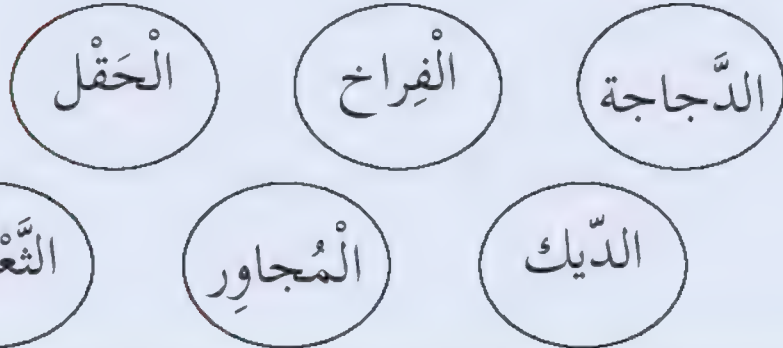 الدَّجاجة الْفِراخ الْحَقْل
الدّيك الْمُجاوِر